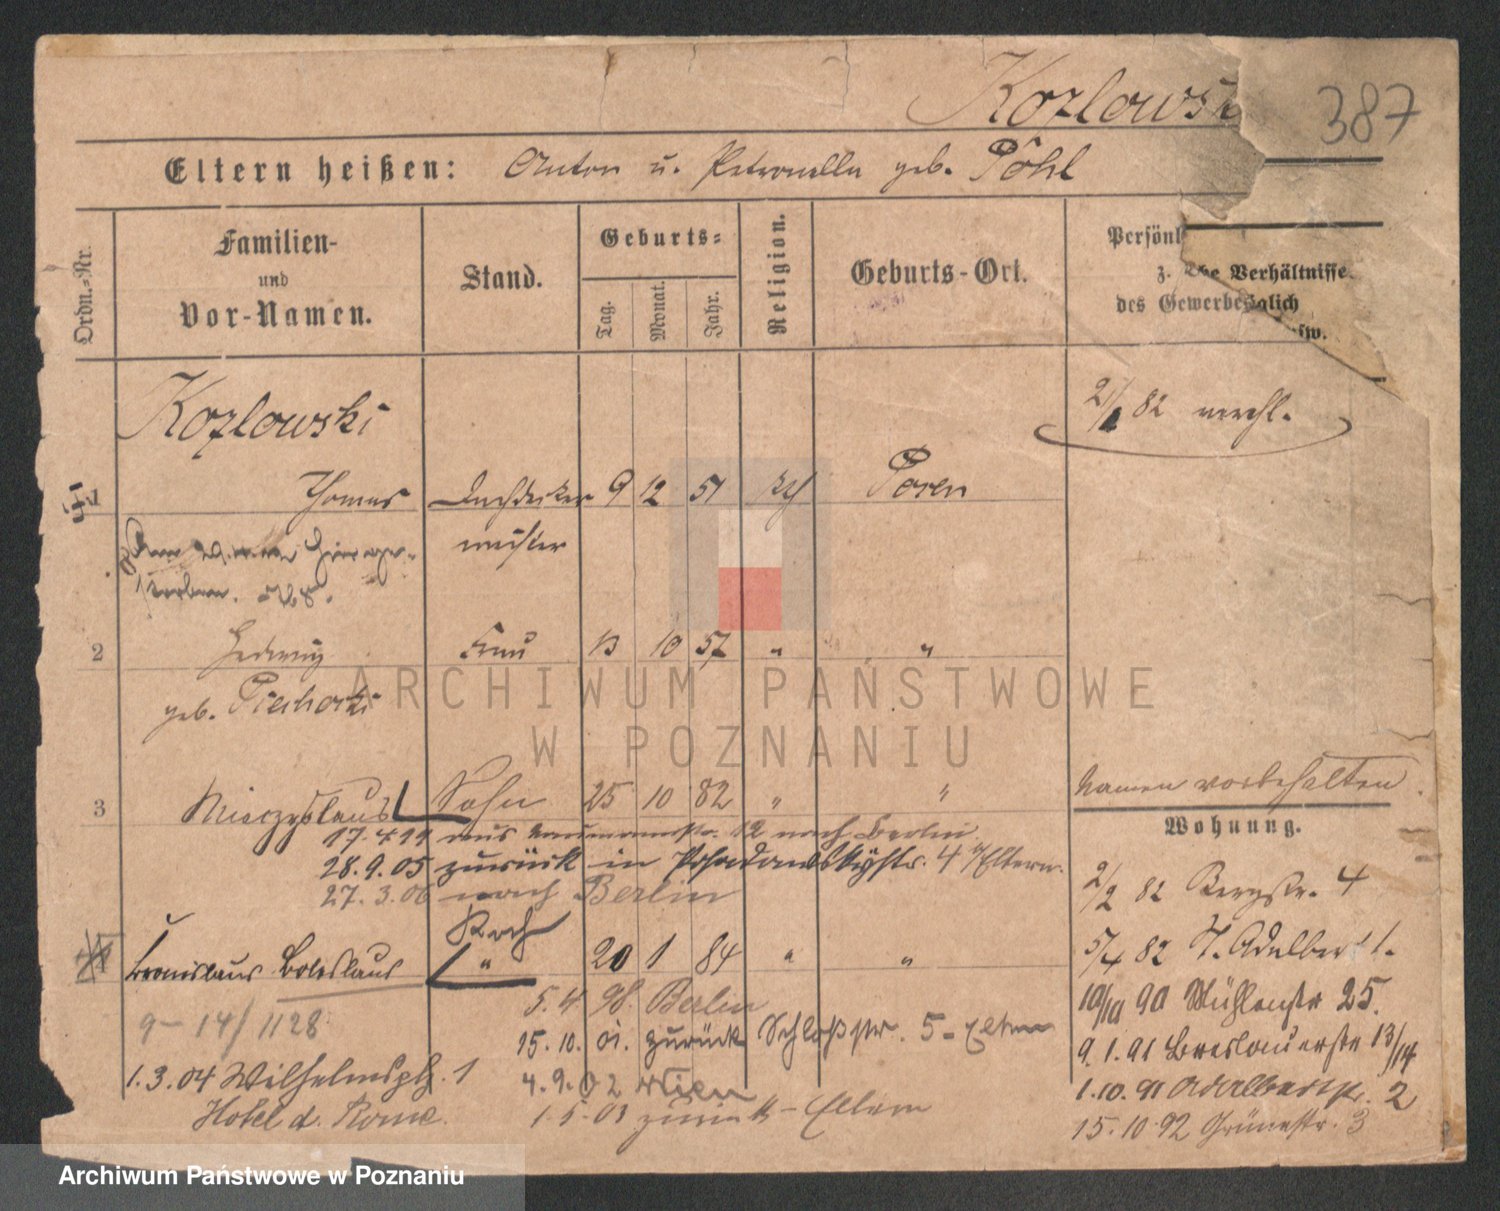 Kozlowski
387
Eltern heißen: Anton u. Petronella geb. Pohl
Ordn.-Nr.
Familien-
und
Vor-Namen.
Stand.
Geburts-
Tag.
Monat.
Jahr.
Religion.
Geburts-Ort.
Persönl
z.
che Verhältnisse
des Gewerbes
glich
usw.
Kozlowski
2/2 82 verehl.
1 Thomas Dachdecker 9 12 51 kth Posen
meister
storben.
2 Hedwig Frau 13 10 57 " "
geb. Piechocki
3 Mieczyslaus Sohn 25 10 82 " "
Namen vorbehalten.
Wohnung.
17.4.99 aus Naumannstr. 12 nach Berlin.
28.9.05 zurück in 4 Eltern.
27.3.06 nach Berlin
2/2 82 Bergstr. 4
Koch
4 Bronislaus Boleslaus " 20 1 84 " "
5/4 82 St. Adalbert 1.
5.4.98. Berlin
10/10 90 Mühlenstr 25.
9-14/1128
15.10.01. zurück Schloßstr. 5 - Eltern
9.1.91 Breslauerstr 13/14
1.3.04 Wilhelmspl. 1
4.9.02 Wien
1.10.91 Adalbertstr. 2
Hotel d. Rome.
1.5.03 zurück - Eltern
15.10.92 Grünestr. 3
ARCHIWUM PAŃSTWOWE
W POZNANIU
Archiwum Państwowe w Poznaniu